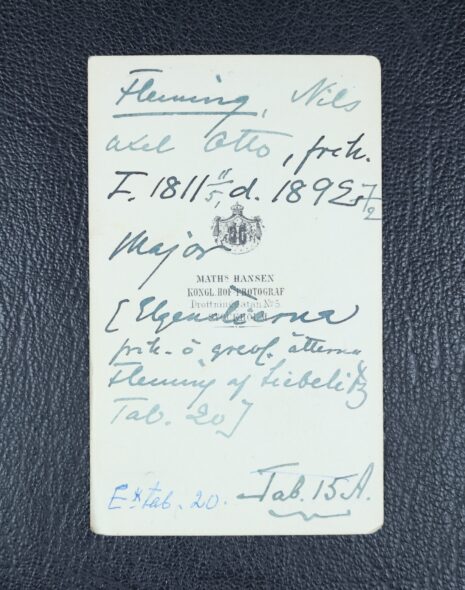 Fleming, Nils
Axel Otto, frih.
F. 1811 11/5, d. 1892 7/2
Major
MATHS HANSEN
KONGL. HOF-PHOTOGRAF
Drottninggatan No 5.
STOCKHOLM
[Elgenstierna
frih. o grevl. ätterna
Fleming af Liebelitz
Tab. 20]
Tab. 15A.
E. tab. 20.